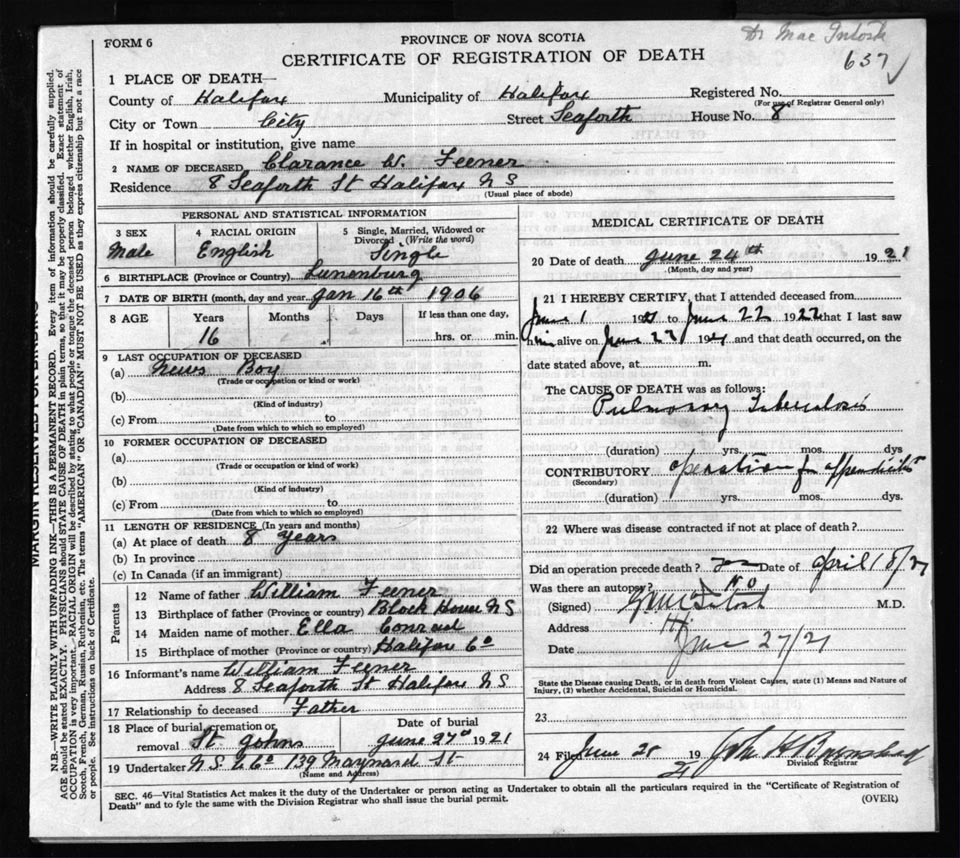 Dr Mac Intosh
637
FORM 6
PROVINCE OF NOVA SCOTIA
CERTIFICATE OF REGISTRATION OF DEATH
1 PLACE OF DEATH—
County of Halifax Municipality of Halifax Registered No.
(For use of Registrar General only)
City or Town City Street Seaforth House No. 8
If in hospital or institution, give name
2 NAME OF DECEASED Clarance W. Feener
Residence 8 Seaforth St Halifax N S
(Usual place of abode)
PERSONAL AND STATISTICAL INFORMATION
3 SEX 4 RACIAL ORIGIN 5 Single, Married, Widowed or Divorced (Write the word)
Male English Single
6 BIRTHPLACE (Province or Country) Lunenburg
7 DATE OF BIRTH (month, day and year Jan 16th 1906
8 AGE Years Months Days If less than one day,
16 hrs. or min.
9 LAST OCCUPATION OF DECEASED
(a) News Boy
(Trade or occupation or kind or work)
(b)
(Kind of industry)
(c) From to
(Date from which to which so employed)
10 FORMER OCCUPATION OF DECEASED
(a)
(Trade or occupation or kind of work)
(b)
(Kind of industry)
(c) From to
(Date from which to which so employed)
11 LENGTH OF RESIDENCE (In years and months)
(a) At place of death 8 years
(b) In province
(c) In Canada (if an immigrant)
Parents
12 Name of father William Feener
13 Birthplace of father (Province or country) Block House N S
14 Maiden name of mother Ella Conrad
15 Birthplace of mother (Province or country) Halifax Co
16 Informant's name William Feener
Address 8 Seaforth St Halifax N S
17 Relationship to deceased Father
18 Place of burial, cremation or removal St Johns Date of burial June 27 1921
19 Undertaker N S U Co 139 Maynard St
(Name and Address)
MEDICAL CERTIFICATE OF DEATH
20 Date of death June 24th 1921
(Month, day and year)
21 I HEREBY CERTIFY, that I attended deceased from
June 1 19 to June 22 19 that I last saw
him alive on June 22 19 and that death occurred, on the
date stated above, at m.
The CAUSE OF DEATH was as follows:
Pulmonary Tuberculosis
(duration) yrs. mos. dys
CONTRIBUTORY operation for appendicitis
(Secondary)
(duration) yrs. mos. dys.
22 Where was disease contracted if not at place of death?
Did an operation precede death? yes Date of April 18/21
Was there an autopsy? No
(Signed) M.D.
Address
Date June 27/21
State the Disease causing Death, or in death from Violent Causes, state (1) Means and Nature of
Injury, (2) whether Accidental, Suicidal or Homicidal.
23
24 Filed June 28 19 21
Division Registrar
SEC. 46—Vital Statistics Act makes it the duty of the Undertaker or person acting as Undertaker to obtain all the particulars required in the "Certificate of Registration of
Death" and to fyle the same with the Division Registrar who shall issue the burial permit.
(OVER)
MARGIN RESERVED FOR BINDING
N.B.—WRITE PLAINLY WITH UNFADING INK—THIS IS A PERMANENT RECORD. Every item of information should be carefully supplied.
AGE should be stated EXACTLY. PHYSICIANS should STATE CAUSE OF DEATH in plain terms, so that it may be properly classified. Exact statement of
OCCUPATION is very important.—RACIAL ORIGIN will be described by stating to what people or tongue the deceased person belonged, whether English, Irish,
Scotch, French, German, Russian, Ruthenian, etc. The terms "AMERICAN" OR "CANADIAN" MUST NOT BE USED as they express citizenship but not a race
or people. See instructions on back of Certificate.